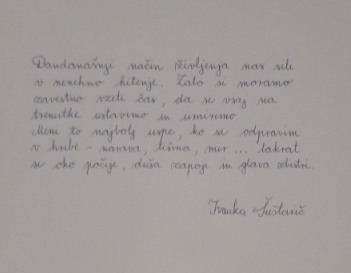 Dandanašnji način življenja nas sili
v nenehno hitenje. Zato si moramo
zavestno vzeti čas, da se vsaj na
trenutke ustavimo in umirimo
Meni to najbolj uspe, ko se odpravim
v hribe - narava, tišina, mir ... takrat
se oko počije, duša zapoje in glava zbistri.
Ivanka Šuštarič